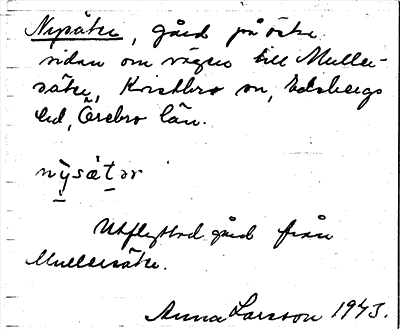 Nysäter, gård på östra
sidan om vägen till Muller-
säter, Kvistbro sn, Edsbergs
hd, Örebro län.
nysä̀tər
Utflyttad gård från
Mullersäter.
Anna Larsson 1943.